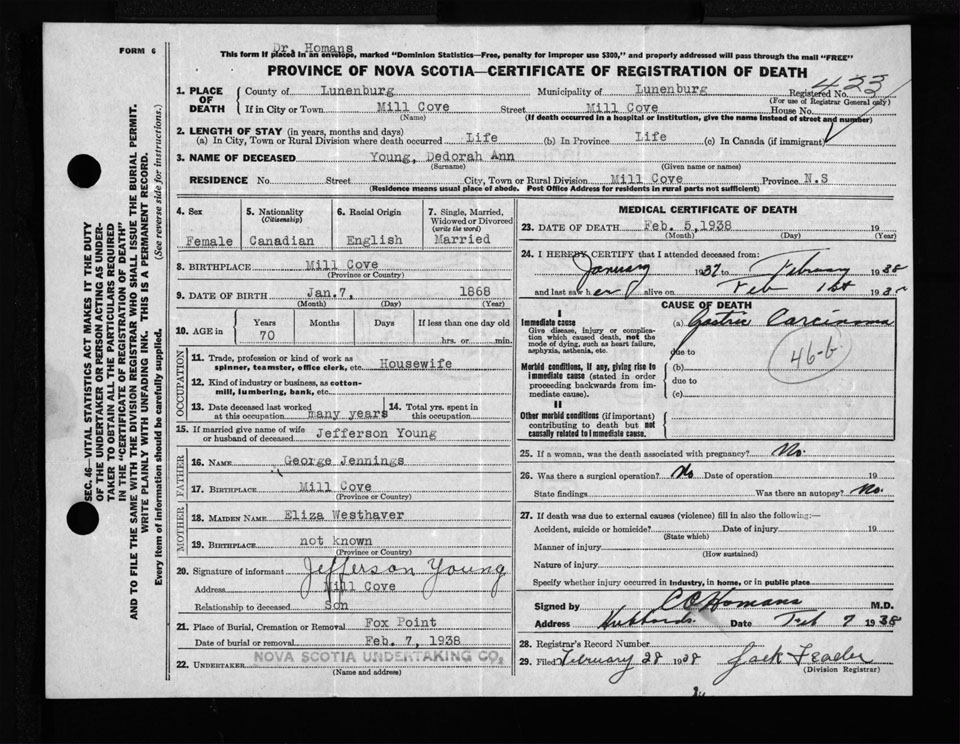 FORM 6
Dr. Homans
This form if placed in an envelope, marked "Dominion Statistics—Free, penalty for improper use $300," and properly addressed will pass through the mail "FREE"
PROVINCE OF NOVA SCOTIA—CERTIFICATE OF REGISTRATION OF DEATH
1. PLACE OF DEATH
County of Lunenburg Municipality of Lunenburg Registered No. 423
(For use of Registrar General only)
If in City or Town Mill Cove Street Mill Cove House No.
(Name) (If death occurred in a hospital or institution, give the name instead of street and number)
2. LENGTH OF STAY (in years, months and days)
(a) In City, Town or Rural Division where death occurred Life (b) In Province Life (c) In Canada (if immigrant)
3. NAME OF DECEASED Young, Dedorah Ann
(Surname) (Given name or names)
RESIDENCE No. Street City, Town or Rural Division Mill Cove Province N.S
(Residence means usual place of abode. Post Office Address for residents in rural parts not sufficient)
4. Sex 5. Nationality (Citizenship) 6. Racial Origin 7. Single, Married, Widowed or Divorced (write the word)
Female Canadian English Married
8. BIRTHPLACE Mill Cove
(Province or Country)
9. DATE OF BIRTH Jan.7, 1868
(Month) (Day) (Year)
10. AGE in Years Months Days If less than one day old
70 hrs. or min.
OCCUPATION
11. Trade, profession or kind of work as spinner, teamster, office clerk, etc. Housewife
12. Kind of industry or business, as cotton-mill, lumbering, bank, etc.
13. Date deceased last worked at this occupation many years 14. Total yrs. spent in this occupation
15. If married give name of wife or husband of deceased Jefferson Young
FATHER
16. NAME George Jennings
17. BIRTHPLACE Mill Cove
(Province or Country)
MOTHER
18. MAIDEN NAME Eliza Westhaver
19. BIRTHPLACE not known
(Province or Country)
20. Signature of informant Jefferson Young
Address Mill Cove
Relationship to deceased Son
21. Place of Burial, Cremation or Removal Fox Point
Date of burial or removal Feb. 7, 1938
22. UNDERTAKER NOVA SCOTIA UNDERTAKING CO
(Name and address)
MEDICAL CERTIFICATE OF DEATH
23. DATE OF DEATH Feb. 5,1938 19
(Month) (Day) (Year)
24. I HEREBY CERTIFY that I attended deceased from:
January 1937 to February 1938
and last saw her alive on Feb 1st 193
CAUSE OF DEATH
I
Immediate cause (a) Gastric Carcinoma
Give disease, injury or complication which caused death, not the mode of dying, such as heart failure, asphyxia, asthenia, etc.
due to
46-6
Morbid conditions, if any, giving rise to immediate cause (stated in order proceeding backwards from immediate cause).
(b)
due to
(c)
II
Other morbid conditions (if important) contributing to death but not causally related to immediate cause.
25. If a woman, was the death associated with pregnancy? No.
26. Was there a surgical operation? No Date of operation 19
State findings Was there an autopsy? No.
27. If death was due to external causes (violence) fill in also the following:—
Accident, suicide or homicide? Date of injury 19
(State which)
Manner of injury
(How sustained)
Nature of injury
Specify whether injury occurred in industry, in home, or in public place
Signed by C C Homans M.D.
Address Hubbards. Date Feb 7 1938
28. Registrar's Record Number
29. Filed February 28 1938 Jack
(Division Registrar)
SEC. 46—VITAL STATISTICS ACT MAKES IT THE DUTY
OF THE UNDERTAKER OR PERSON ACTING AS UNDER-
TAKER TO OBTAIN ALL THE PARTICULARS REQUIRED
IN THE "CERTIFICATE OF REGISTRATION OF DEATH"
AND TO FILE THE SAME WITH THE DIVISION REGISTRAR WHO SHALL ISSUE THE BURIAL PERMIT.
WRITE PLAINLY WITH UNFADING INK. THIS IS A PERMANENT RECORD.
Every item of information should be carefully supplied. (See reverse side for instructions.)